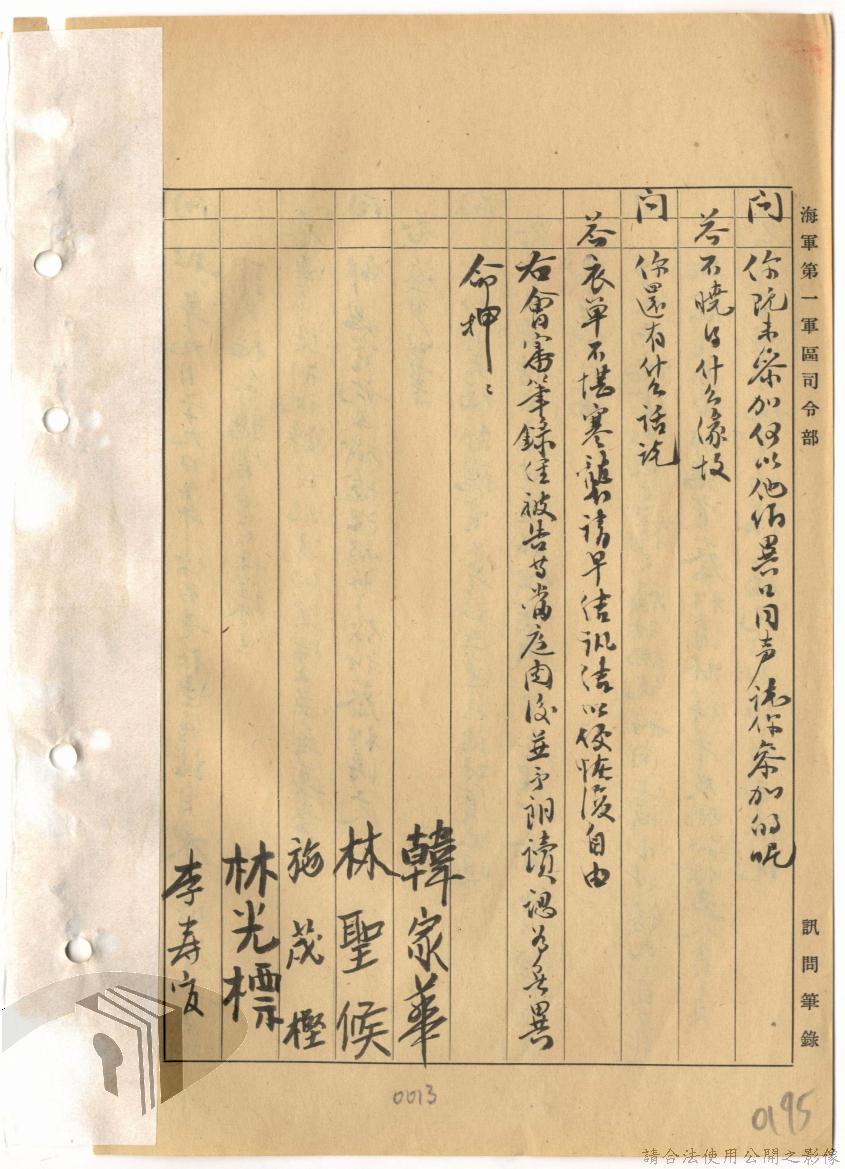 海軍第一軍區司令部 訊問筆錄
问 你既未参加何以他们異口同声说你参加的呢
答 不曉得什么缘故
问 你還有什么话说
答 衣单不堪寒襲请早结讯结以便恢復自由
右會審筆錄经被告等當庭閲後並予朗讀認为無異
命押
韓家華
林聖候
施茂樫
林光標
李寿
0013
0195
請合法使用公開之影像